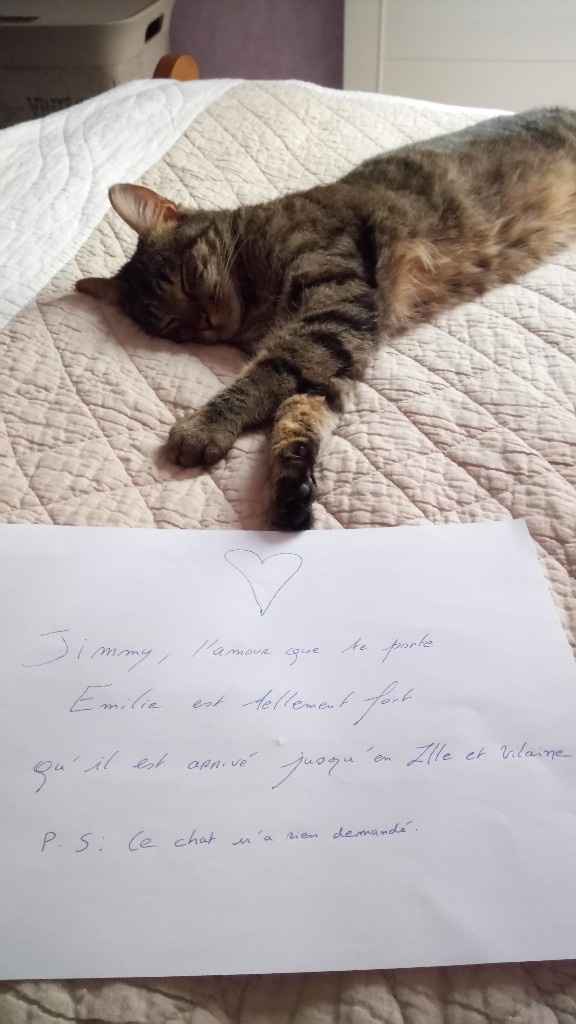 Jimmy, l'amour que te porte
Emilie est tellement fort
qu'il est arrivé jusqu'en Ille et Vilaine
P.S: Ce chat n'a rien demandé.